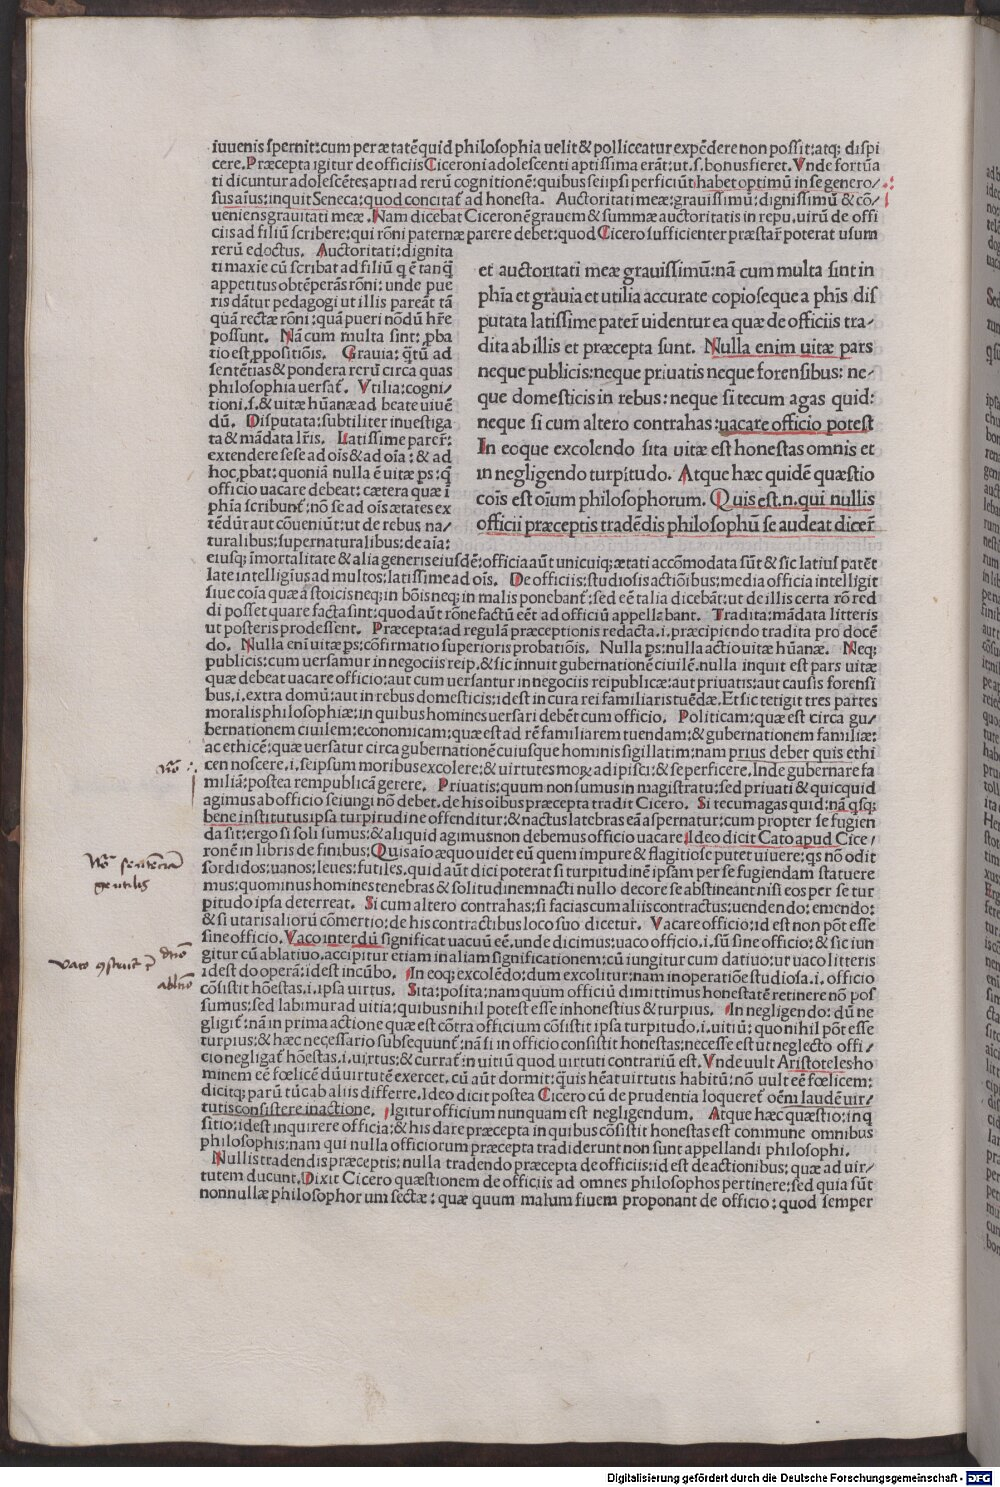 iuuenis spernit: cum per ætatē quid philosophia uelit & polliceatur expēdere non possit: atq; dispi
cere. Præcepta igitur de officiis Ciceroni adolescenti aptissima erāt: ut .s. bonus fieret. Vnde fortūa
ti dicuntur adolescētes apti ad rerū cognitionē: quibus sei ipsi perficiūt: habet optimū in se genero/
sus aīus: inquit Seneca: quod concitat̄ ad honesta. Auctoritati meæ: grauissimū: dignissimū & cō/
ueniens grauitati meæ. Nam dicebat Ciceronē grauem & summæ auctoritatis in repu. uirū de offi
ciis ad filiū scribere: qui rōni paternæ parere debet: quod Cicero sufficienter præstar̄ poterat usum
rerū edoctus. Auctoritati: dignita
ti maxīe cū scribat ad filiū q ē tanq̄
appetitus obtēperās rōni: unde pue
ris dātur pedagogi ut illis pareāt tā
quā rectæ rōni: quā pueri nōdū hr̄e
possunt. Nā cum multa sint: ꝓba
tio est ꝓpositiōis. Grauia: q̄tū ad
sentētias & pondera rerū circa quas
philosophia uersat̄. Vtilia: cogni/
tioni .s. & uitæ hūanæ ad beate uiuē
dū. Disputata: subtiliter inuestiga
ta & mādata lr̄is. Latissime parer̄:
extendere sese ad oīs & ad oīa: & ad
hoc ꝓbat: quoniā nulla ē uitæ ps: q̄
officio uacare debeat: cætera quæ ī
phīa scribunt̄: nō se ad oīs ætates ex
tēdūr aut cōueniūt: ut de rebus na/
turalibus: supernaturalibus: de aīa:
et auctoritati meæ grauissimū: nā cum multa sint in
phīa et grauia et utilia accurate copioseque a phīs dis
putata latissime pater̄ uidentur ea quæ de officiis tra/
dita ab illis et præcepta sunt. Nulla enim uitæ pars
neque publicis: neque priuatis neque forensibus: ne/
que domesticis in rebus: neque si tecum agas quid:
neque si cum altero contrahas: uacare officio potest
In eoque excolendo sita uitæ est honestas omnis et
in negligendo turpitudo. Atque hæc quidē quæstio
coīs est oīum philosophorum. Quis est .n. qui nullis
officii præceptis tradēdis philosophū se audeat dicer̄
eiusq; īmortalitate & alia generis eiusdē: officia aūt unicuiq; ætati accōmodata sūt & sic latius patēt
Late intelligius ad multos: latissime ad oīs. De officiis: studiosis actiōibus; media officia intelligit
siue coīa quæ a stoicis neq; in bōis neq; in malis ponebant̄: sed eē talia dicebāt: ut de illis certa rō red
di posset quare facta sint: quod aūt rōne factū eēt ad officiū appellabant. Tradita: mādata litteris
ut posteris prodessent. Præcepta: ad regulā præceptionis redacta .i. præcipiendo tradita pro docē
do. Nulla enī uitæ ps: cōfirmatio superioris probatiōis. Nulla ps: nulla actio uitæ hūanæ. Neq;
publicis: cum uersamur in negociis reip. & sic innuit gubernationē ciuilē. nulla inquit est pars uitæ
quæ debeat uacare officio: aut cum uersantur in negociis reipublicæ: aut priuatis: aut causis forensi
bus .i. extra domū: aut in rebus domesticis: idest in cura rei familiaris tuēdæ. Et sic tetigit tres partes
moralis philosophiæ: in quibus homines uersari debēt cum officio. Politicam: quæ est circa gu/
bernationem ciuilem: economicam: quæ est ad rē familiarem tuendam: & gubernationem familiæ:
ac ethicē: quæ uersatur circa gubernationē cuiusque hominis sigillatim: nam prius debet quis ethi
cen noscere .i. seipsum moribus excolere: & uirtutes moꝝ adipisci: & se perficere. Inde gubernare fa
miliā: postea rempublicā gerere. Priuatis: quum non sumus in magistratu: sed priuati & quicquid
agimus ab officio seiungi nō debet. de his oībus præcepta tradit Cicero. Si tecum agas quid: nā q̄sq;
bene institutus ipsa turpitudine offenditur: & nactus latebras eā aspernatur: cum propter se fugien
da sit: ergo si soli sumus: & aliquid agimus non debemus officio uacare. Ideo dicit Cato apud Cice/
ronē in libris de finibus: Quis aīo æquo uidet eū quem impure & flagitiose putet uiuere: qs nō odit
sordidos: uanos: leues: futiles. quid aūt dici poterat si turpitudinē ipsam per se fugiendam statuere
mus: quominus homines tenebras & solitudinem nacti nullo decore se abstineant nisi eos per se tur
pitudo ipsa deterreat. Si cum altero contrahas: si facias cum aliis contractus: uendendo: emendo:
& si utaris aliorū cōmertio: de his contractibus loco suo dicetur. Vacare officio: id est non pōt esse
sine officio. Vaco interdū significat uacuū eē. unde dicimus: uaco officio .i. sū sine officio: & sic iun
gitur cū ablatiuo. accipitur etiam in aliam significationem: cū iungitur cum datiuo: ut uaco litteris
idest do operā: idest incūbo. In eoq; excolēdo: dum excolitur: nam in operatiōe studiosa .i. officio
cōsistit hōestas .i. ipsa uirtus. Sita: posita: nam quum officiū dimittimus honestatē retinere nō pos
sumus: sed labimur ad uitia: quibus nihil potest esse inhonestius & turpius. In negligendo: dū ne
gligit̄: nā in prima actione quæ est cōtra officium cōsistit ipsa turpitudo .i. uitiū: quo nihil pōt esse
turpius: & hæc necessario subsequunt̄: nā si in officio consistit honestas: necesse est ut neglecto offi/
cio negligat̄ hōestas .i. uirtus: & currat̄ in uitiū quod uirtuti contrariū est. Vnde uult Aristoteles ho
minem eē fœlicē dū uirtutē exercet. cū aūt dormit: q̄uis hēat uirtutis habitū: nō uult eē fœlicem:
dicitq; parū tūc ab aliis differre. Ideo dicit postea Cicero cū de prudentia loqueret̄ oēm laudē uir/
tutis consistere in actione. Igitur officium nunquam est negligendum. Atque hæc quæstio: inq
sitio: idest inquirere officia: & his dare præcepta in quibus cōsistit honestas est commune omnibus
philosophis: nam qui nulla officiorum præcepta tradiderunt non sunt appellandi philosophi.
Nullis tradendis præceptis: nulla tradendo præcepta de officiis: id est de actionibus: quæ ad uir/
tutem ducunt. Dixit Cicero quæstionem de officiis ad omnes philosophos pertinere: sed quia sūt
nonnullæ philosophorum sectæ: quæ quum malum finem proponant de officio: quod semper
Digitalisierung gefördert durch die Deutsche Forschungsgemeinschaft - DFG